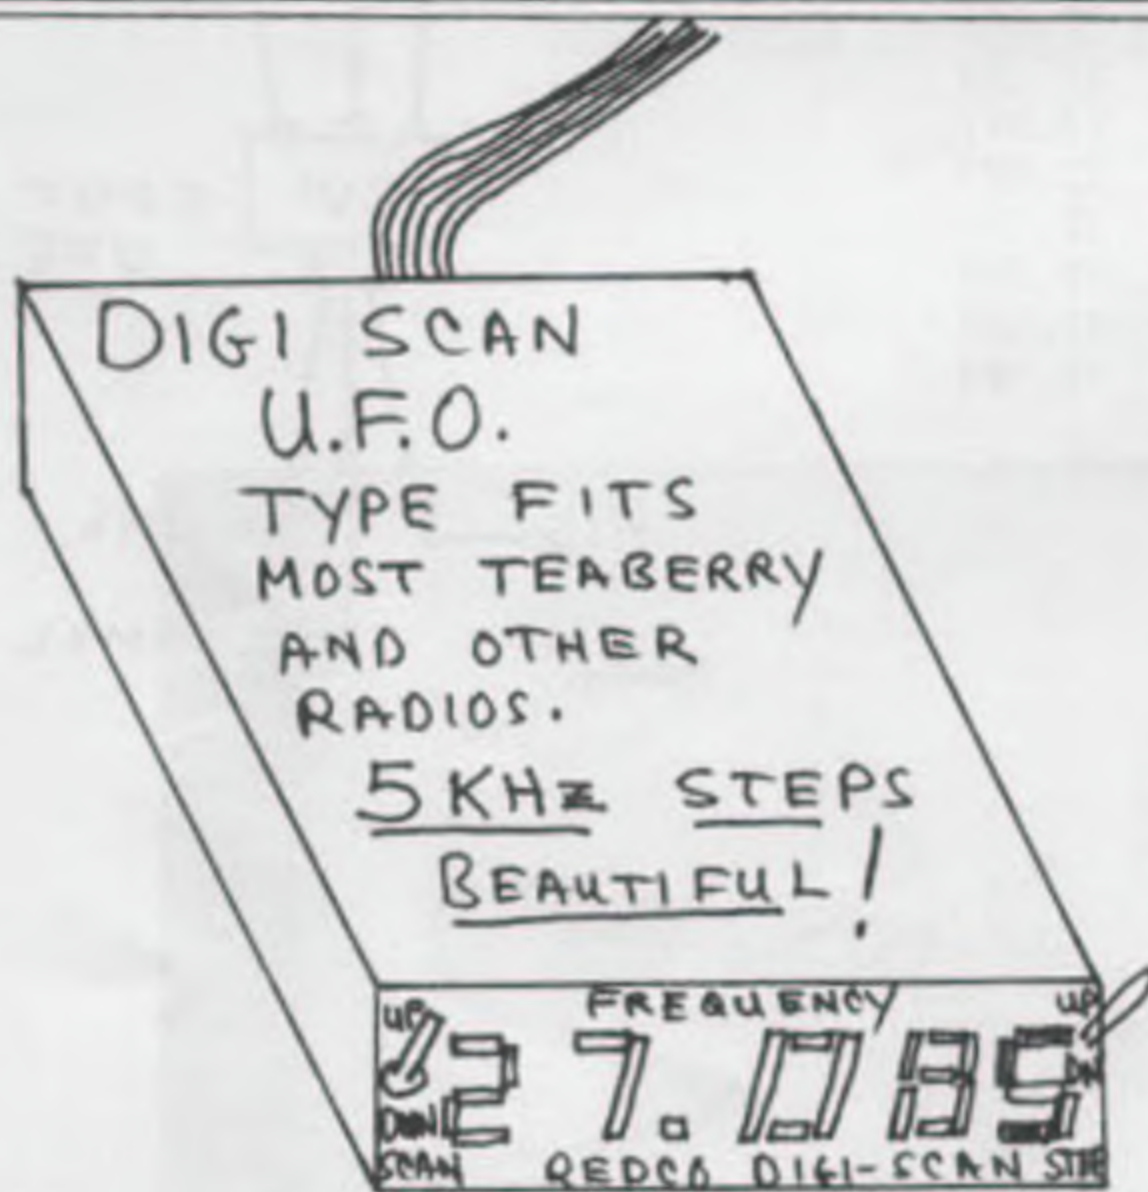 DIGI SCAN
U.F.O.
TYPE FITS
MOST TEABERRY
AND OTHER
RADIOS.
5 KHz STEPS
BEAUTIFUL!
UP FREQUENCY UP
27.085
DWN
SCAN QEDCO DIGI-SCAN